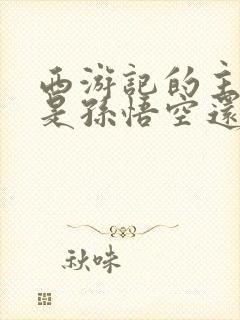 西游記的主
是孫悟空還
秋味